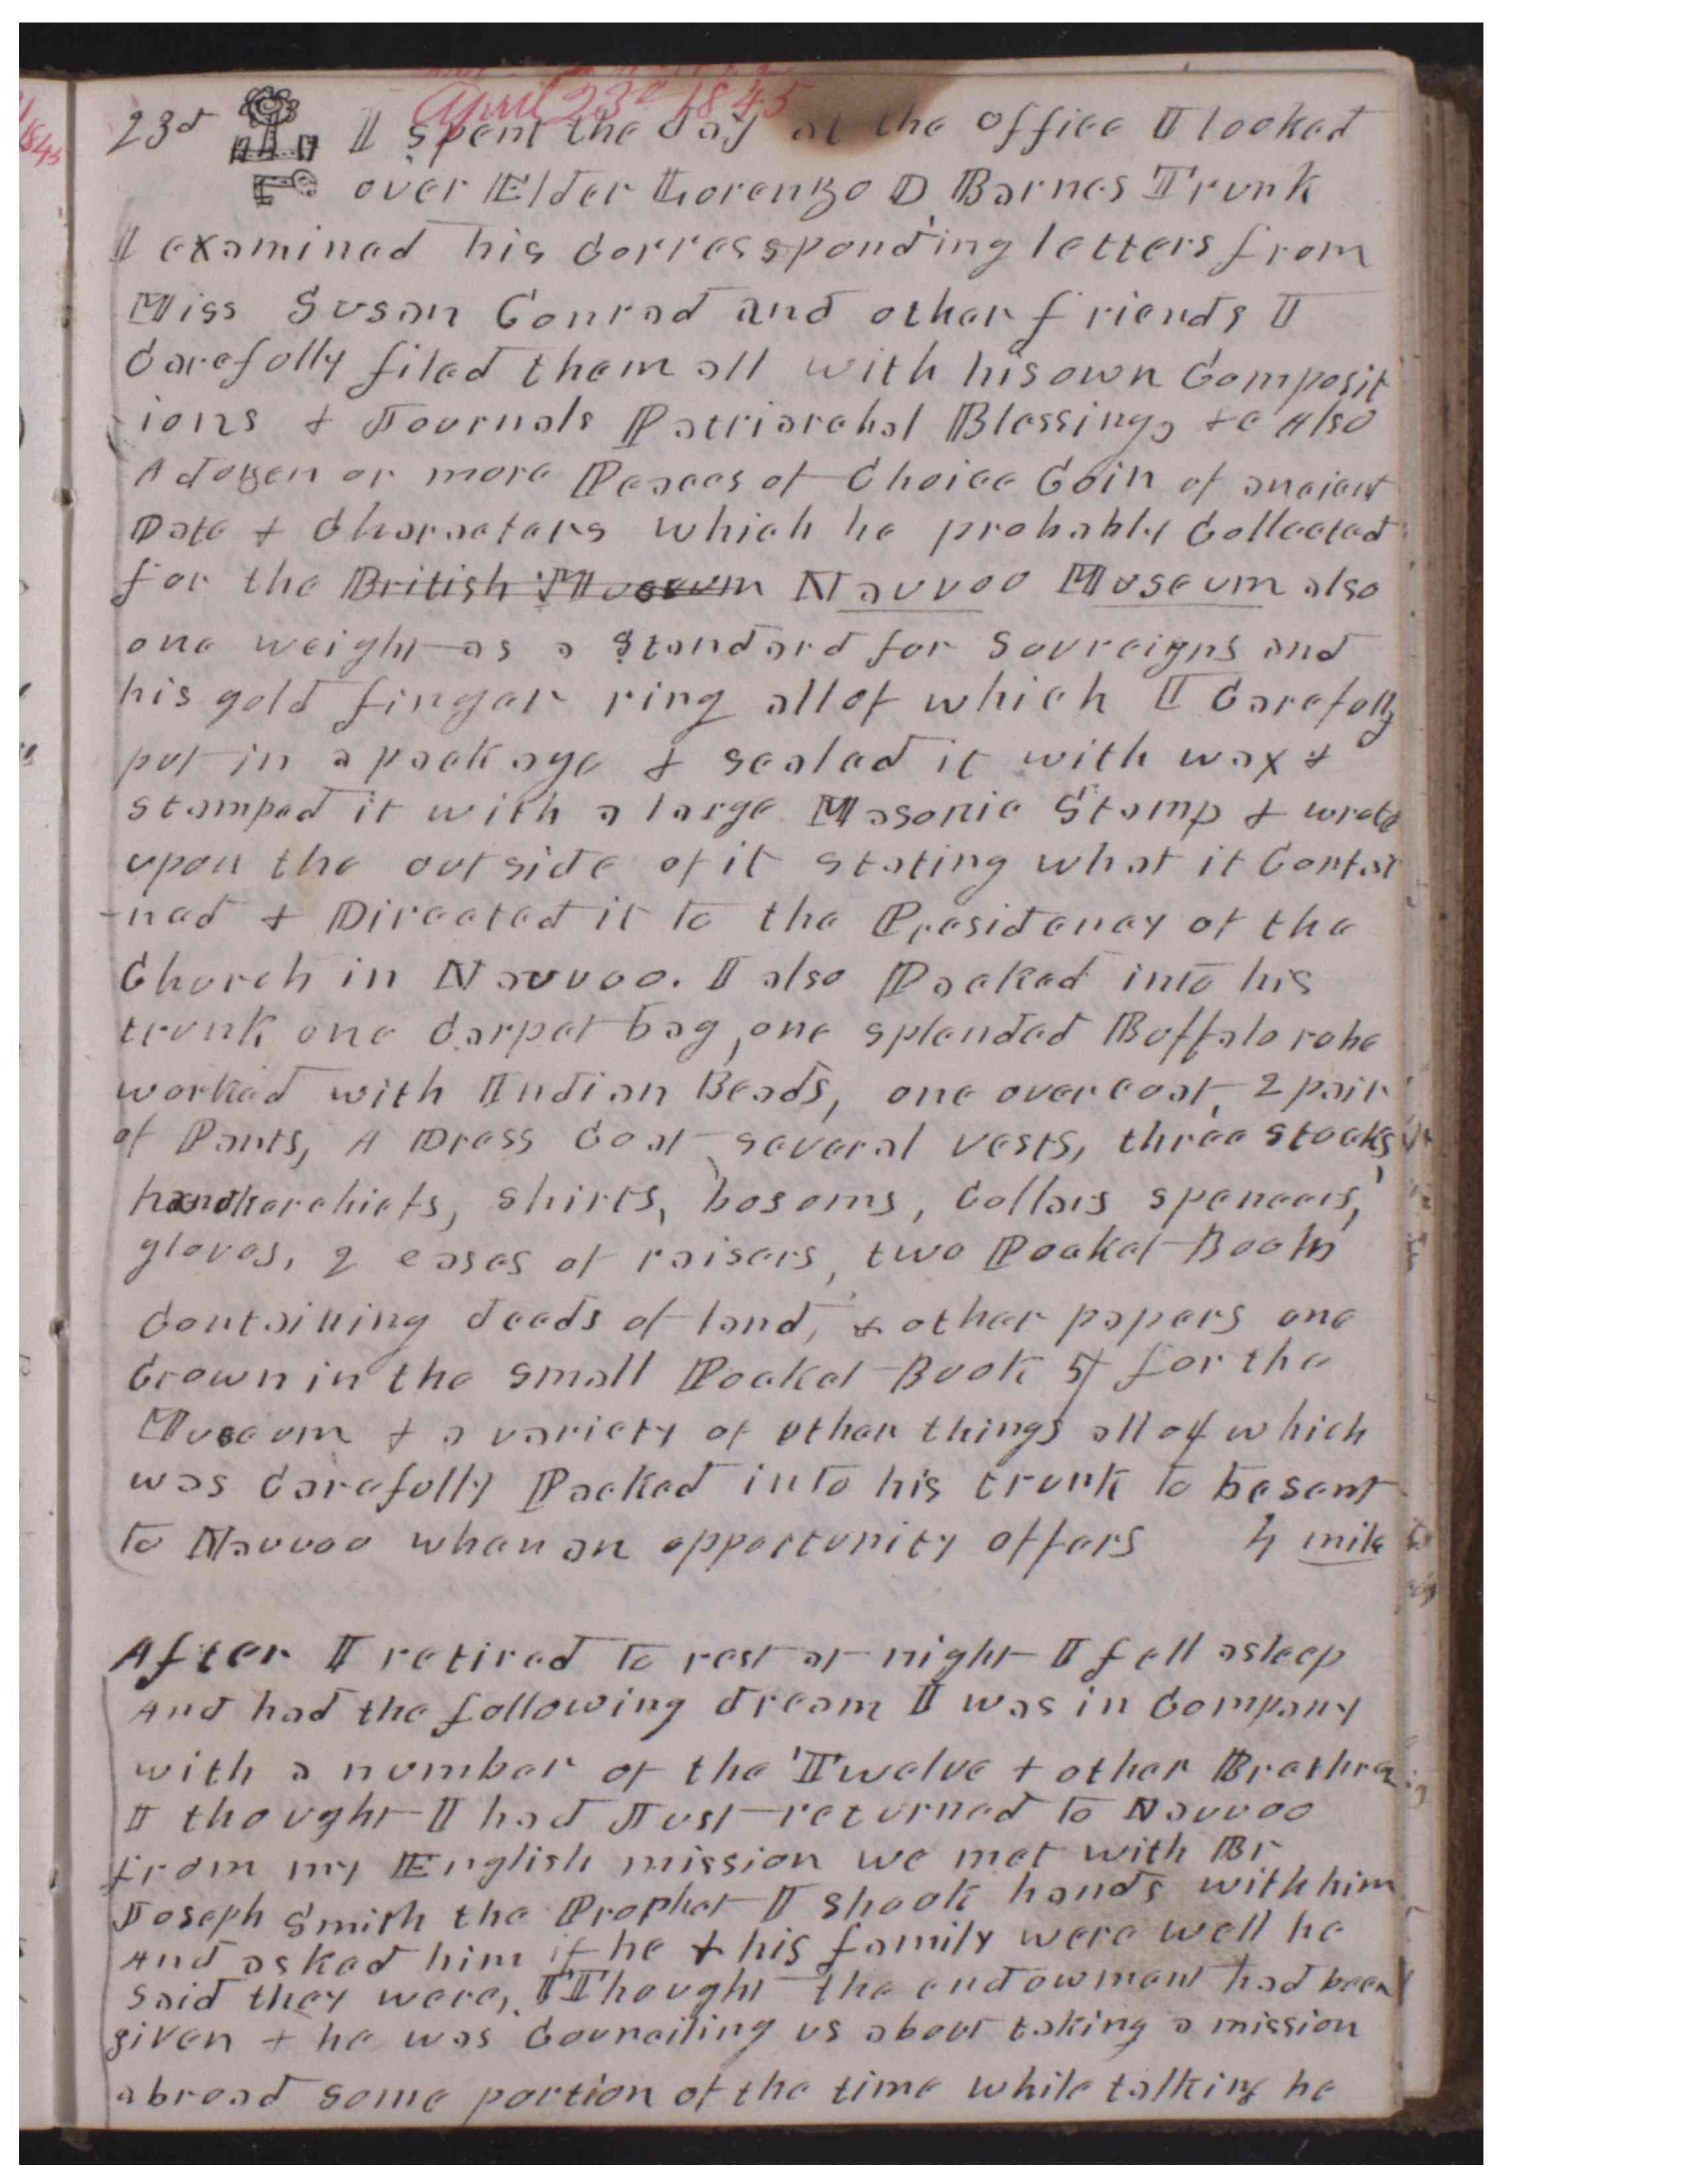 April 23d 1845
23d I spent the day at the office I looked
over Elder Lorenzo D Barnes Trunk
I examined his Corresponding letters from
Miss Susan Conrad and other friends I
Carefully filed them all with his own Composit
ions & Journals Patriarchal Blessings &c Also
A dozen or more Peaces of Choice Coin of ancient
Date & Characters which he probably Collected
for the British Museum Nauvoo Museum also
one weight as a Standard for Sovreigns and
his gold finger ring all of which I Carefully
put in a package & sealed it with wax &
stamped it with a large Masonic Stamp & wrote
upon the outside of it stating what it Contai
-ned & Directed it to the Presidency of the
Church in Nauvoo. I also Packed into his
trunk one Carpet bag, one splended Buffalo robe
worked with Indian Beads, one over coat, 2 pair
of Pants, A Dress Coat several vests, three stocks,
handkerchiefs, shirts, bosoms, Collars spencers,
gloves, 2 cases of raisers, two Pocket Books
Containing deeds of land, & other papers one
Crown in the small Pocket Book 5/ for the
Museum & a variety of other things all of which
was Carefully Packed into his trunk to be sent
to Nauvoo when an opportunity offers 4 mile
After I retired to rest at night I fell asleep
And had the following dream I was in Company
with a number of the Twelve & other Brethren
I thought I had Just returned to Nauvoo
from my English mission we met with Br
Joseph Smith the Prophet I shook hands with him
And asked him if he & his family were well he
said they were, I Thought the endowment had been
given & he was Counciling us about taking a mission
abroad some portion of the time while talking he